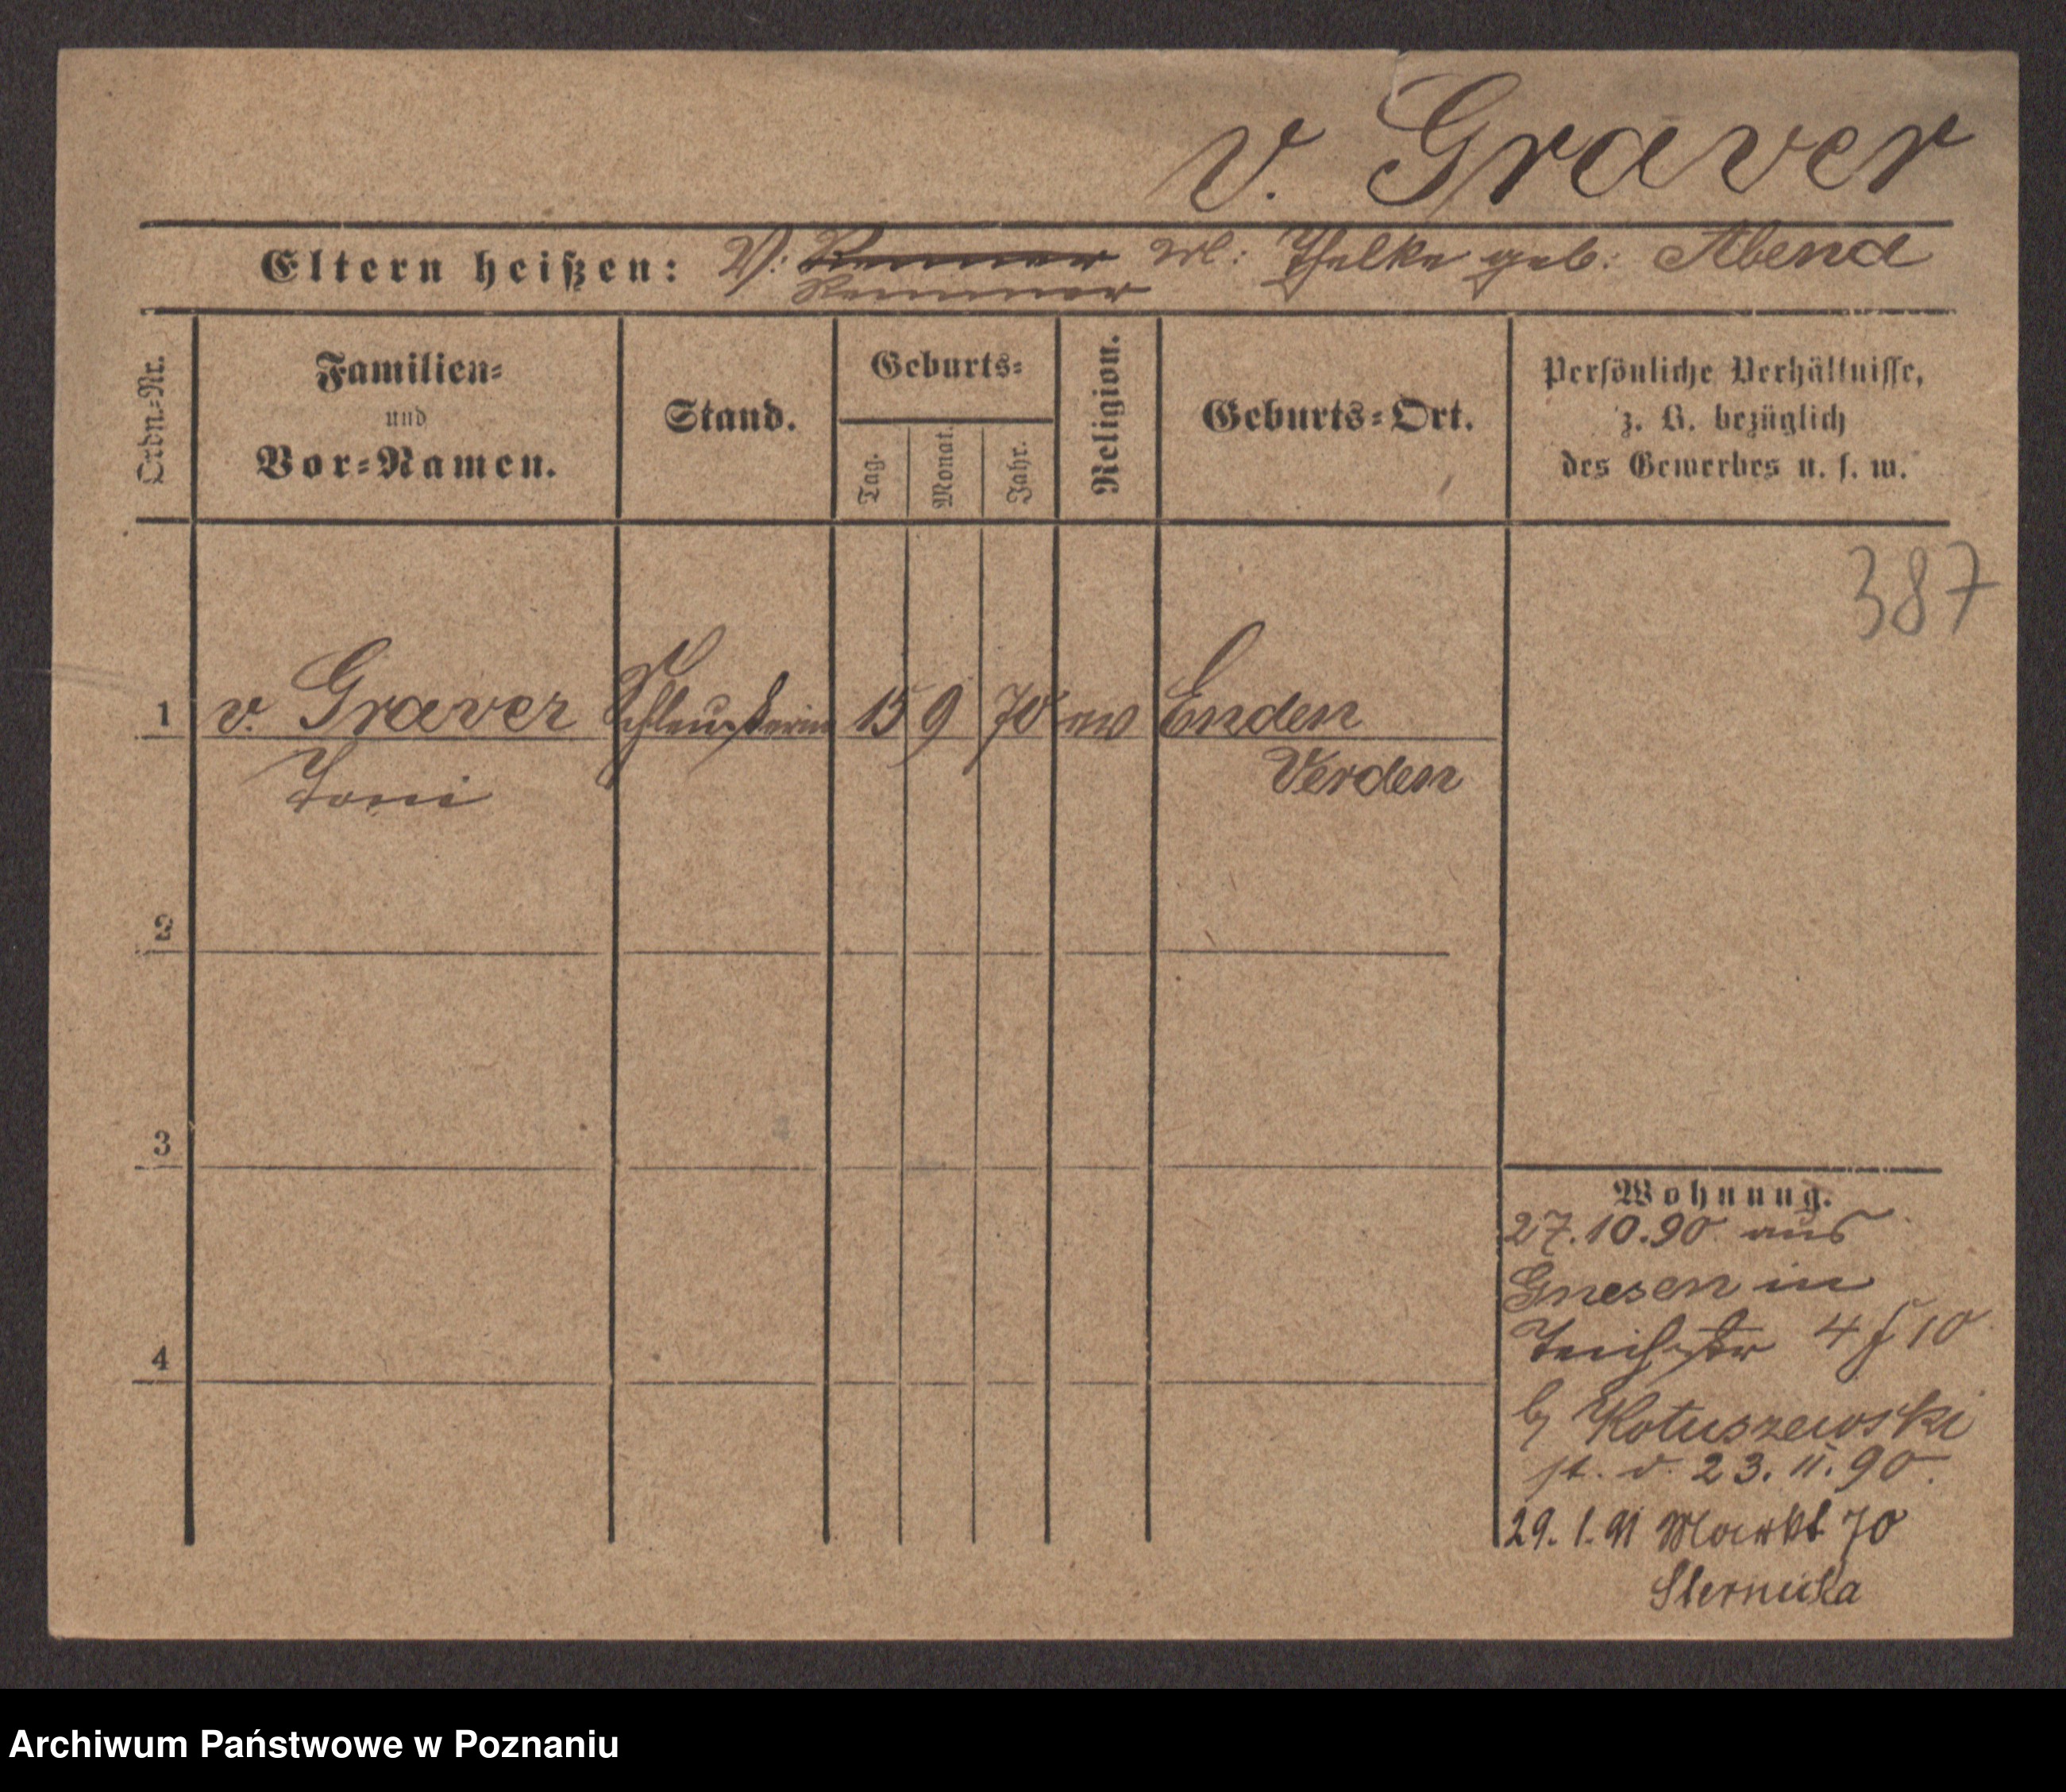 v. Graver
Eltern heißen: V: Remmer M: Thelke geb: Abend
Remmer
Ordn.-Nr.
Familien-
und
Vor-Namen.
Stand.
Geburts-
Tag.
Monat.
Jahr.
Religion.
Geburts-Ort.
Persönliche Verhältnisse,
z. B. bezüglich
des Gewerbes u. s. w.
387
1 v. Graver 15 9 70 ev Enden
Toni Verden
2
3
4
Wohnung.
27.10.90 aus
Gnesen in
Teichstr 4 f 10
by Kotuszewski
st. v. 23. 11. 90.
29. 1. 91 Markt 70
Sternicka
Archiwum Państwowe w Poznaniu